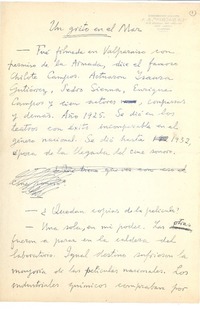 Un grito en el Mar
— Fué filmada en Valparaíso con
permiso de la Armada, dice el famoso
Chilote Campos. Actuaron Ysaura
Gutiérrez, Pedro Sienna, Enriqueta
Campos y cien extras, comparsas
y demás. Año 1925. Se dió en los
teatros con éxito incomparable en el
género nacional. Se dió hasta 1932,
época de la llegada del cine sonoro.
— ¿Quedan copias de la película?
— Una sola, en mi poder. Las otras
fueron a parar en la caldera del
laboratorio. Igual destino sufrieron la
mayoría de las películas nacionales. Los
industriales químicos compraban por